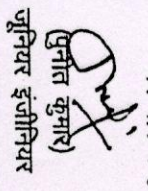 (पुनीत कुमार)
जूनियर इंजीनियर